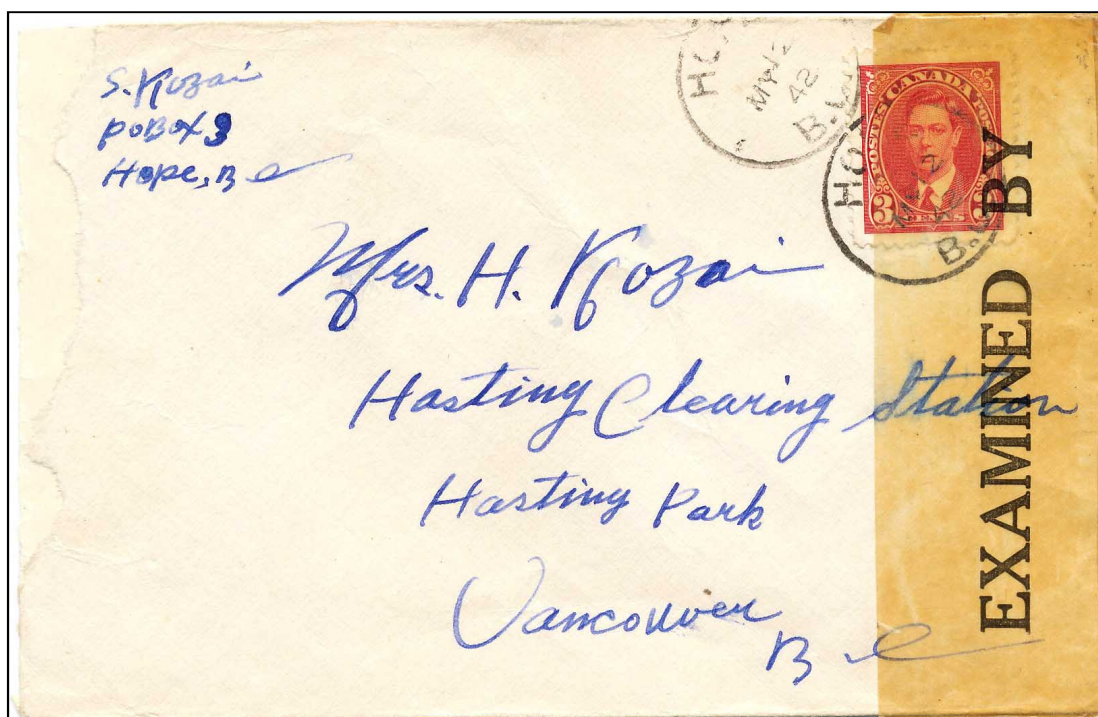 S. Kozai
PO Box 3
Hope, B C
HO
MY 12
42
B.C.
POSTES CANADA POSTAGE
3 CENTS 3
HO
12
B.C.
Mrs. H. Kozai
Hasting Clearing Station
Hasting Park
Vancouver
B C
EXAMINED BY